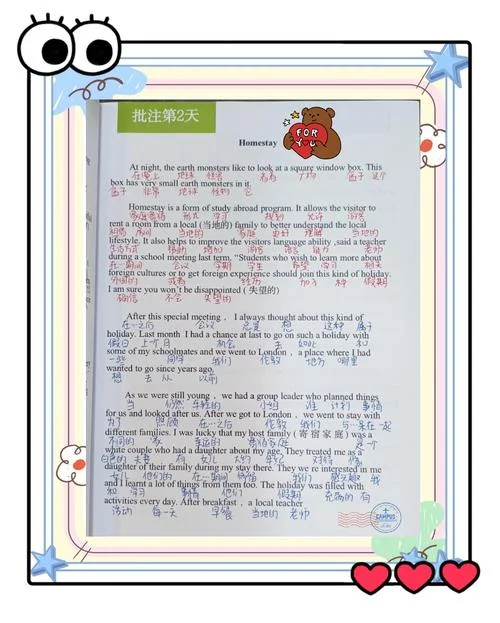 批注第2天
FOR
YOU
Homestay
At night, the earth monsters like to look at a square window box. This
在晚上 地球 怪兽 看着 盒子 这个
box has very small earth monsters in it.
盒子 非常 地球 怪物 它
Homestay is a form of study abroad program. It allows the visitor to
家庭寄宿 形式 学习 规划 允许 游客
rent a room from a local (当地的) family to better understand the local
租借 房间 当地的 家庭 更好 理解 当地的
lifestyle. It also helps to improve the visitors language ability ,said a teacher
生活方式 帮助 增加 游客 语言 能力 老师
during a school meeting last term. “Students who wish to learn more about
在一期间 会议 学期 学生 希望 学习
foreign cultures or to get foreign experience should join this kind of holiday.
外国的 或者 经历 加入 种 假期
I am sure you won't be disappointed ( 失望的)
确信 不会 失望的
After this special meeting , I always thought about this kind of
在一之后 会议 总是 想 这种 属于
holiday. Last month I had a chance at last to go on such a holiday with
假日 上个月 机会 去 如此 和
some of my schoolmates and we went to London , a place where I had
一些 同学 我们 伦敦 地方 哪里
wanted to go since years ago.
想 去 从 以前
As we were still young , we had a group leader who planned things
当 仍然 年轻的 小组 谁 计划 事情
for us and looked after us. After we got to London , we went to stay with
为了 照顾 在一之后 伦敦 我们 与一呆在一起
different families. I was lucky that my host family ( 寄 宿 家 庭 ) was a
不同的 家 幸运的 寄宿家庭 是一个
white couple who had a daughter about my age. They treated me as a
白色的 夫妻 有 女儿 大约 年纪 对待 像
daughter of their family during my stay there. They we re interested in me
女儿 他们的 在一期间 停留 我们 感兴趣 我
and I learnt a lot of things from them too. The holiday was filled with
和 学习 事情 他们 假期 充满的 有
activities every day. After breakfast , a local teacher
活动 每一天 早餐 当地的 老师
CAMPUS